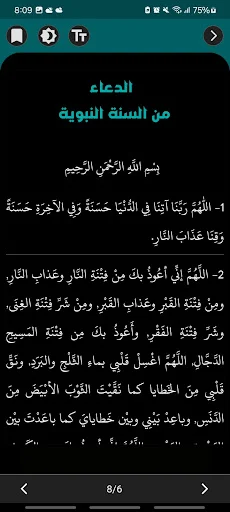 8:09
75%
الدعاء
من السنة النبوية
بِسْمِ اللَّهِ الرَّحْمَنِ الرَّحِيمِ
1- اللَّهُمَّ رَبَّنَا آتِنَا فِي الدُّنْيَا حَسَنَةً وَفِي الآخِرَةِ حَسَنَةً
وَقِنَا عَذَابَ النَّارِ.
2- اللَّهمَّ إنِّي أعُوذُ بكَ مِنْ فِتْنَةِ النَّارِ وعَذابِ النَّارِ،
ومِنْ فِتْنَةِ القَبْرِ وعَذابِ القَبْرِ، ومِنْ شَرِّ فِتْنَةِ الغِنَى،
وشَرِّ فِتْنَةِ الفَقْرِ، وأَعُوذُ بكَ مِن فِتْنَةِ المَسِيحِ
الدَّجَّالِ، اللَّهُمَّ اغْسِلْ قَلْبِي بماءِ الثَّلْجِ والبَرَدِ، ونَقِّ
قَلْبِي مِنَ الخَطايا كما نَقَّيْتَ الثَّوْبَ الأبْيَضَ مِنَ
الدَّنَسِ، وباعِدْ بَيْنِي وبيْن خَطايايَ كما باعَدْتَ بيْن
8/6